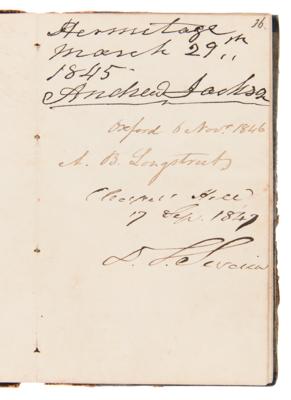 36.
Hermitage
March 29th
1845
Andrew Jackson
Oxford 6 Novr 1846
A. B. Longstreet
Hill)
17 Sep. 1847